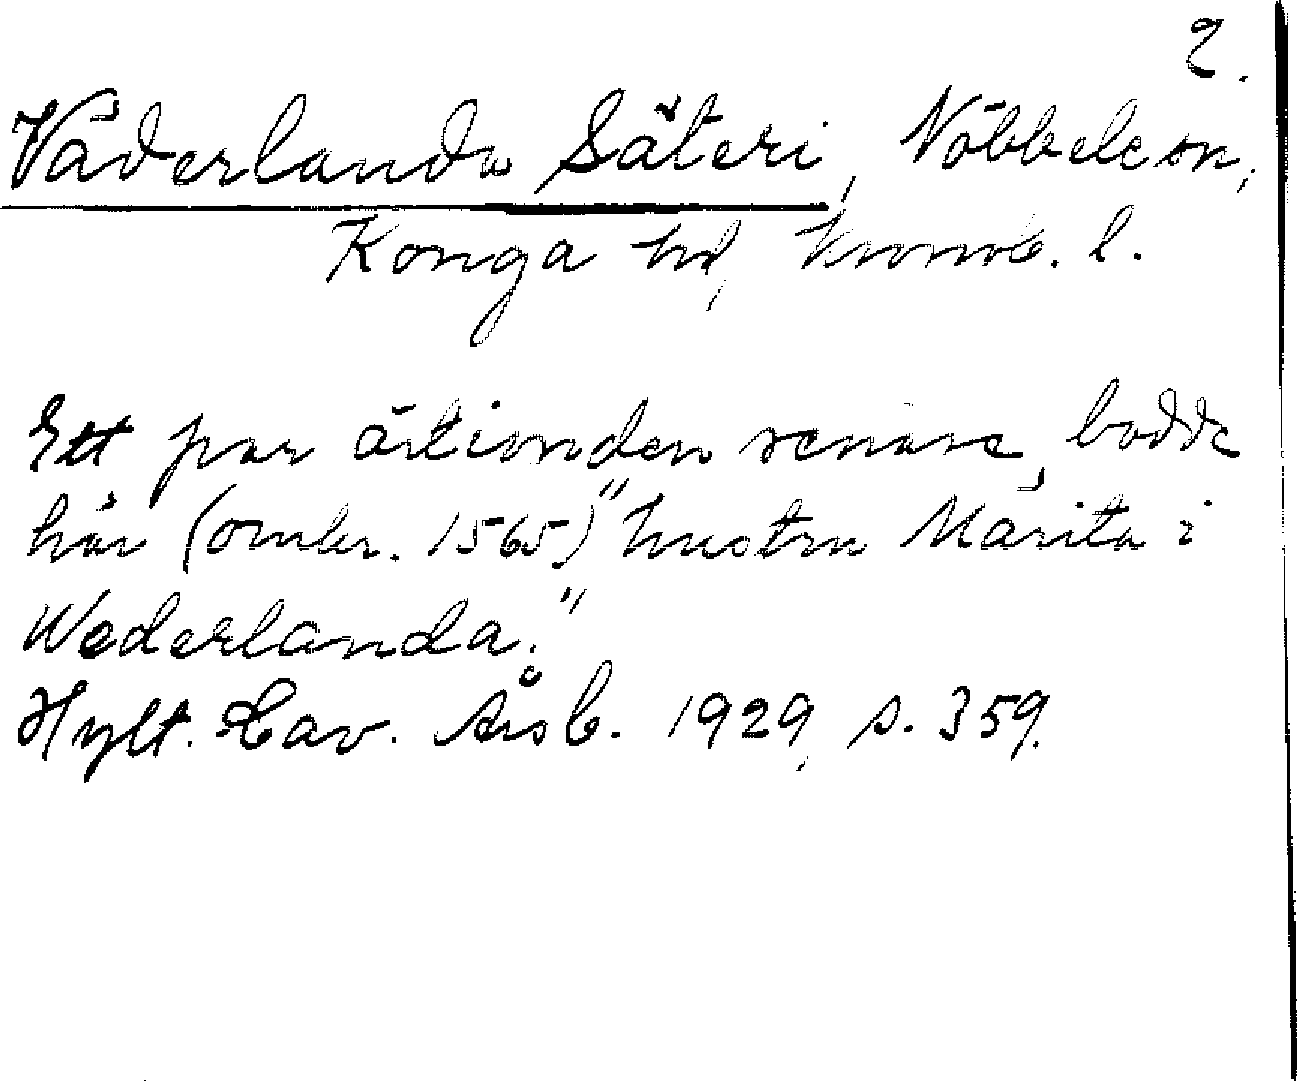 2.
Väderlanda Säteri, Nöbbele sn,
Konga hd, Kronob. l.
Ett par årtionden senare bodde
här (omkr. 1565) "hustru Märita i
Wederlanda."
Hylt. Cav. Årsb. 1929, s. 359.